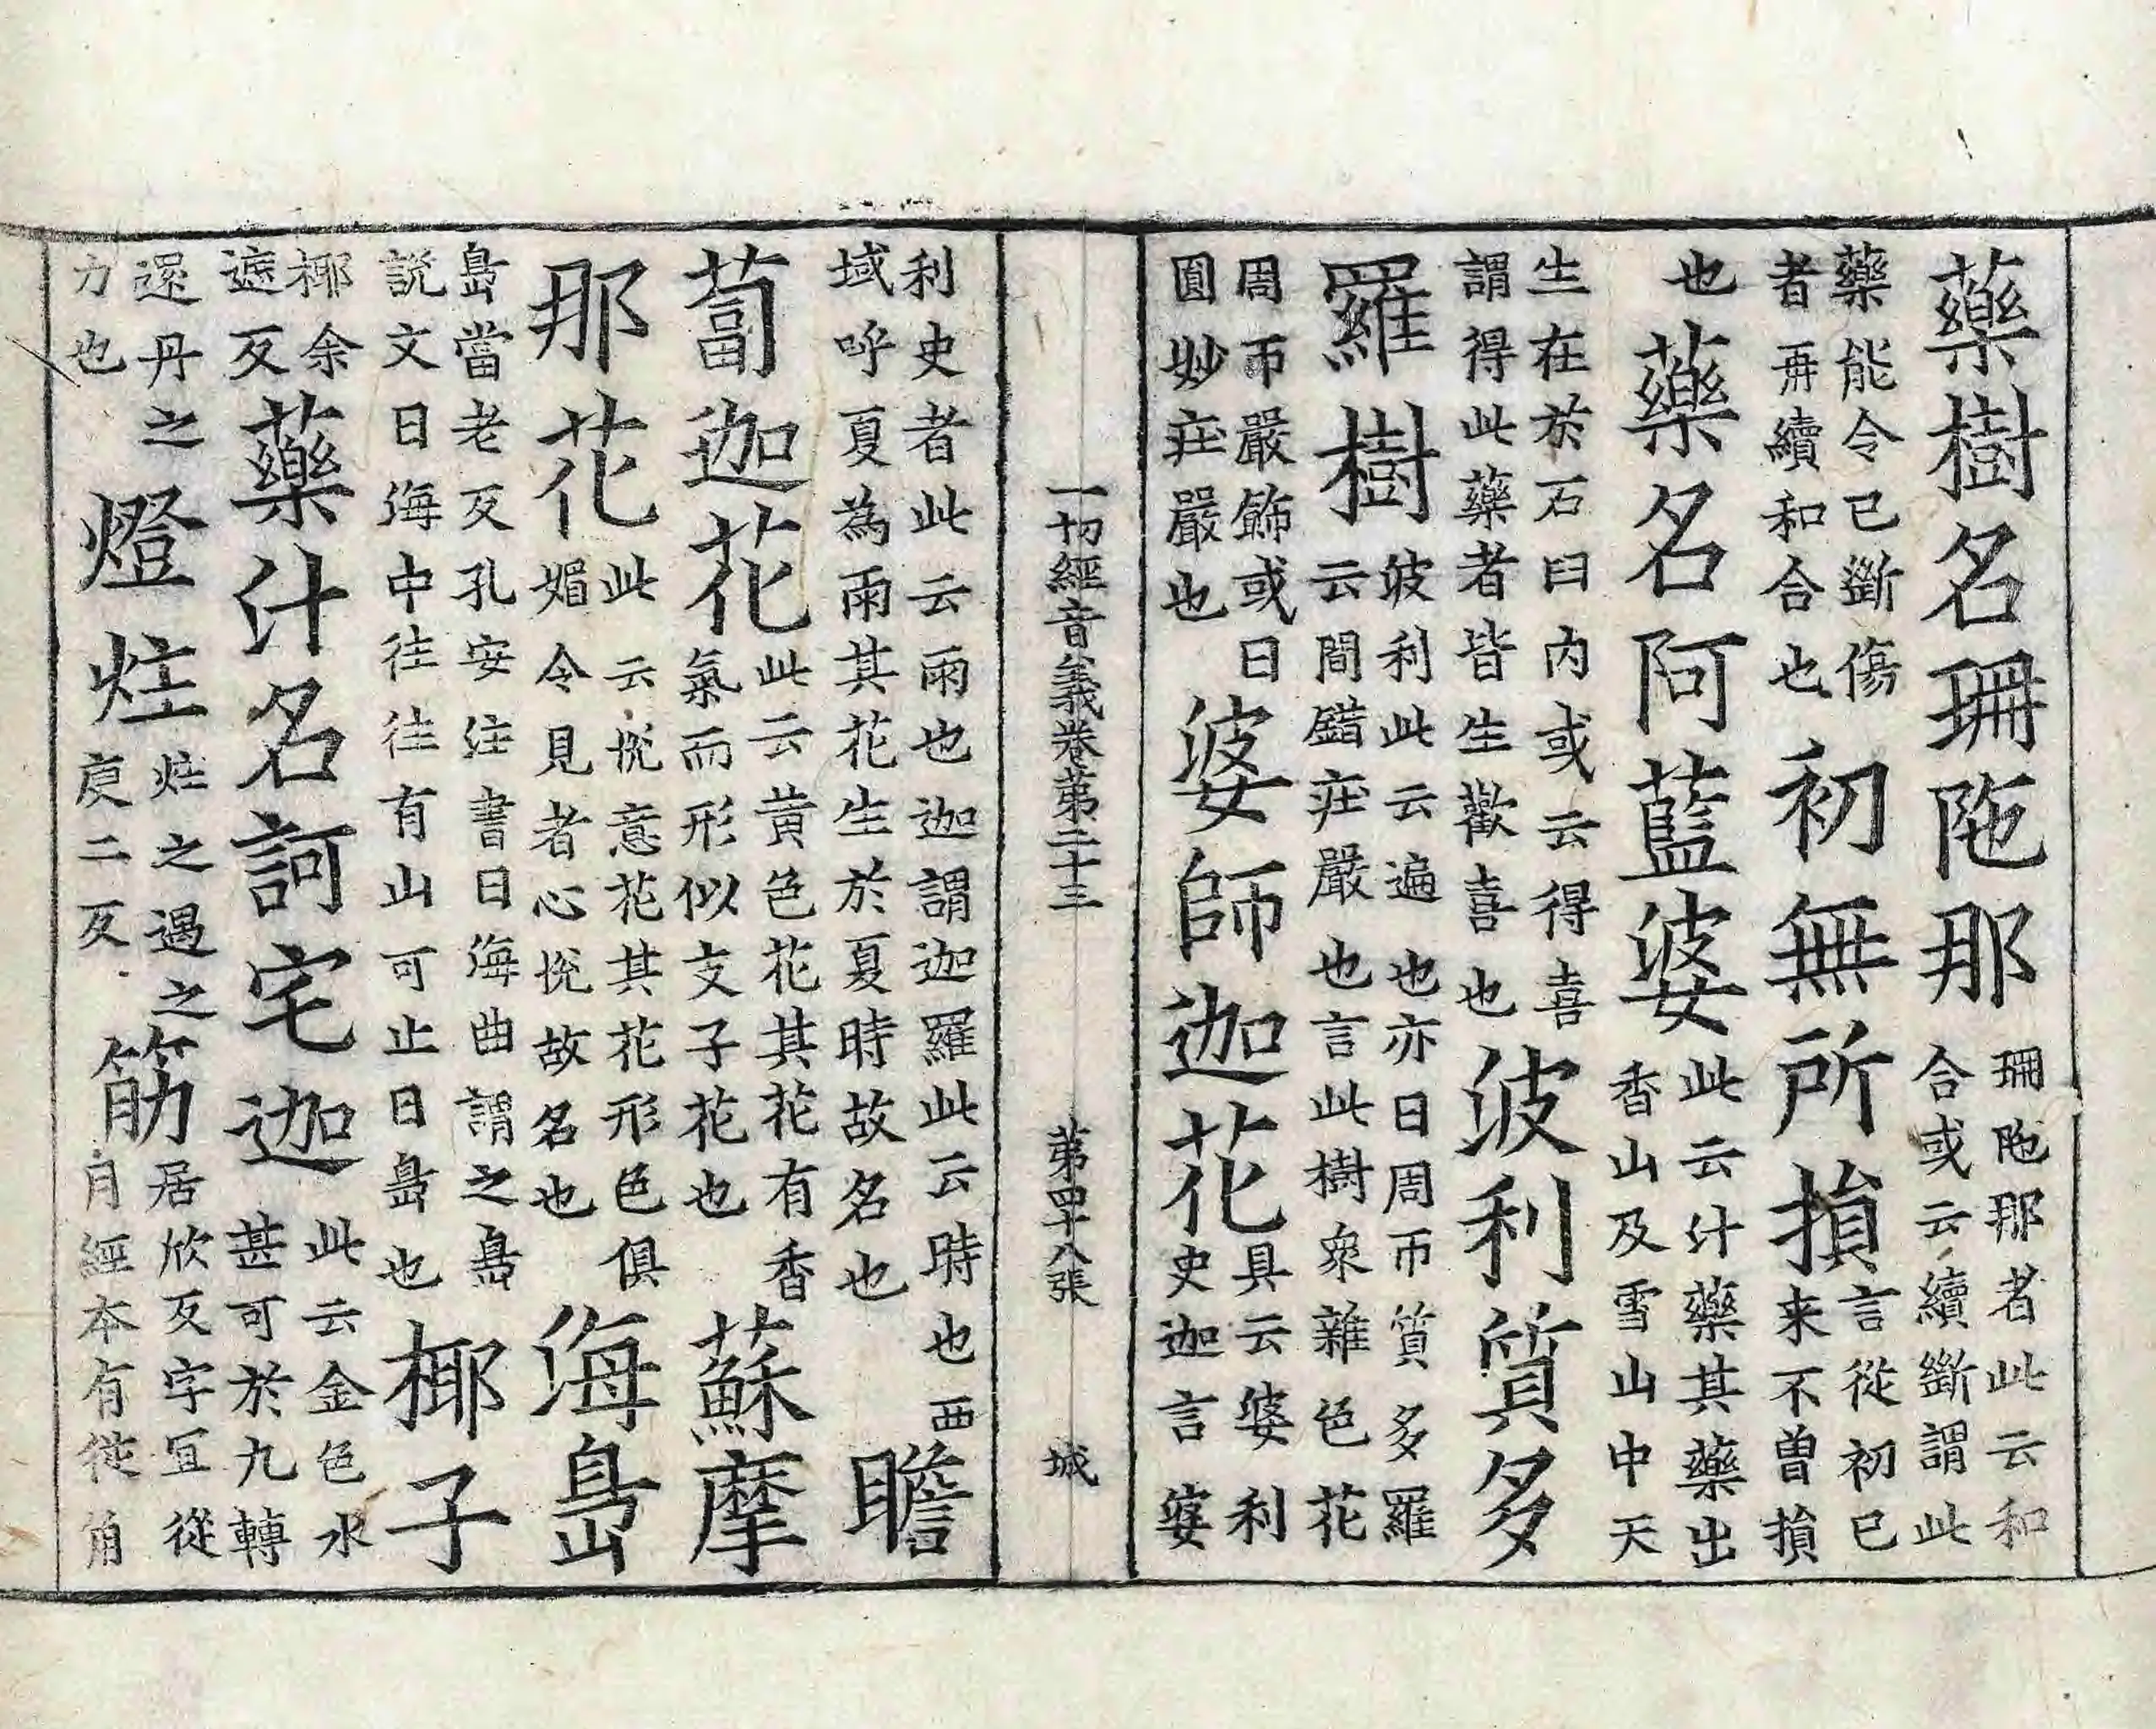 藥樹名珊陁那珊陁那者此云和合或云續斷謂此
藥能令已斷傷者再續和合也初無所損言從初已来不曾損
也藥名阿藍婆此云汁藥其藥出香山及雪山中天
生在於石臼内或云得喜謂得此藥者皆生歡喜也波利質多
羅樹波利此云遍也亦曰周帀質多羅云間錯莊嚴也言此樹衆雜色花
周帀嚴飾或曰圓妙莊嚴也婆師迦花具云婆利史迦言婆
一切經音義卷第二十三 第四十八張 城
利史者此云雨也迦謂迦羅此云時也西域呼夏為雨其花生於夏時故名也瞻
蔔迦花此云黄色花其花有香氣而形似支子花也蘇摩
那花此云悅意花其花形色俱媚令見者心悅故名也海島
島當老反孔安注書曰海曲謂之島説文曰海中往往有山可止曰島也椰子
椰余遮反藥汁名訶宅迦此云金色水甚可於九轉
還丹之力也燈炷炷之遇之庾二反筋居欣反字冝從月經本有從角